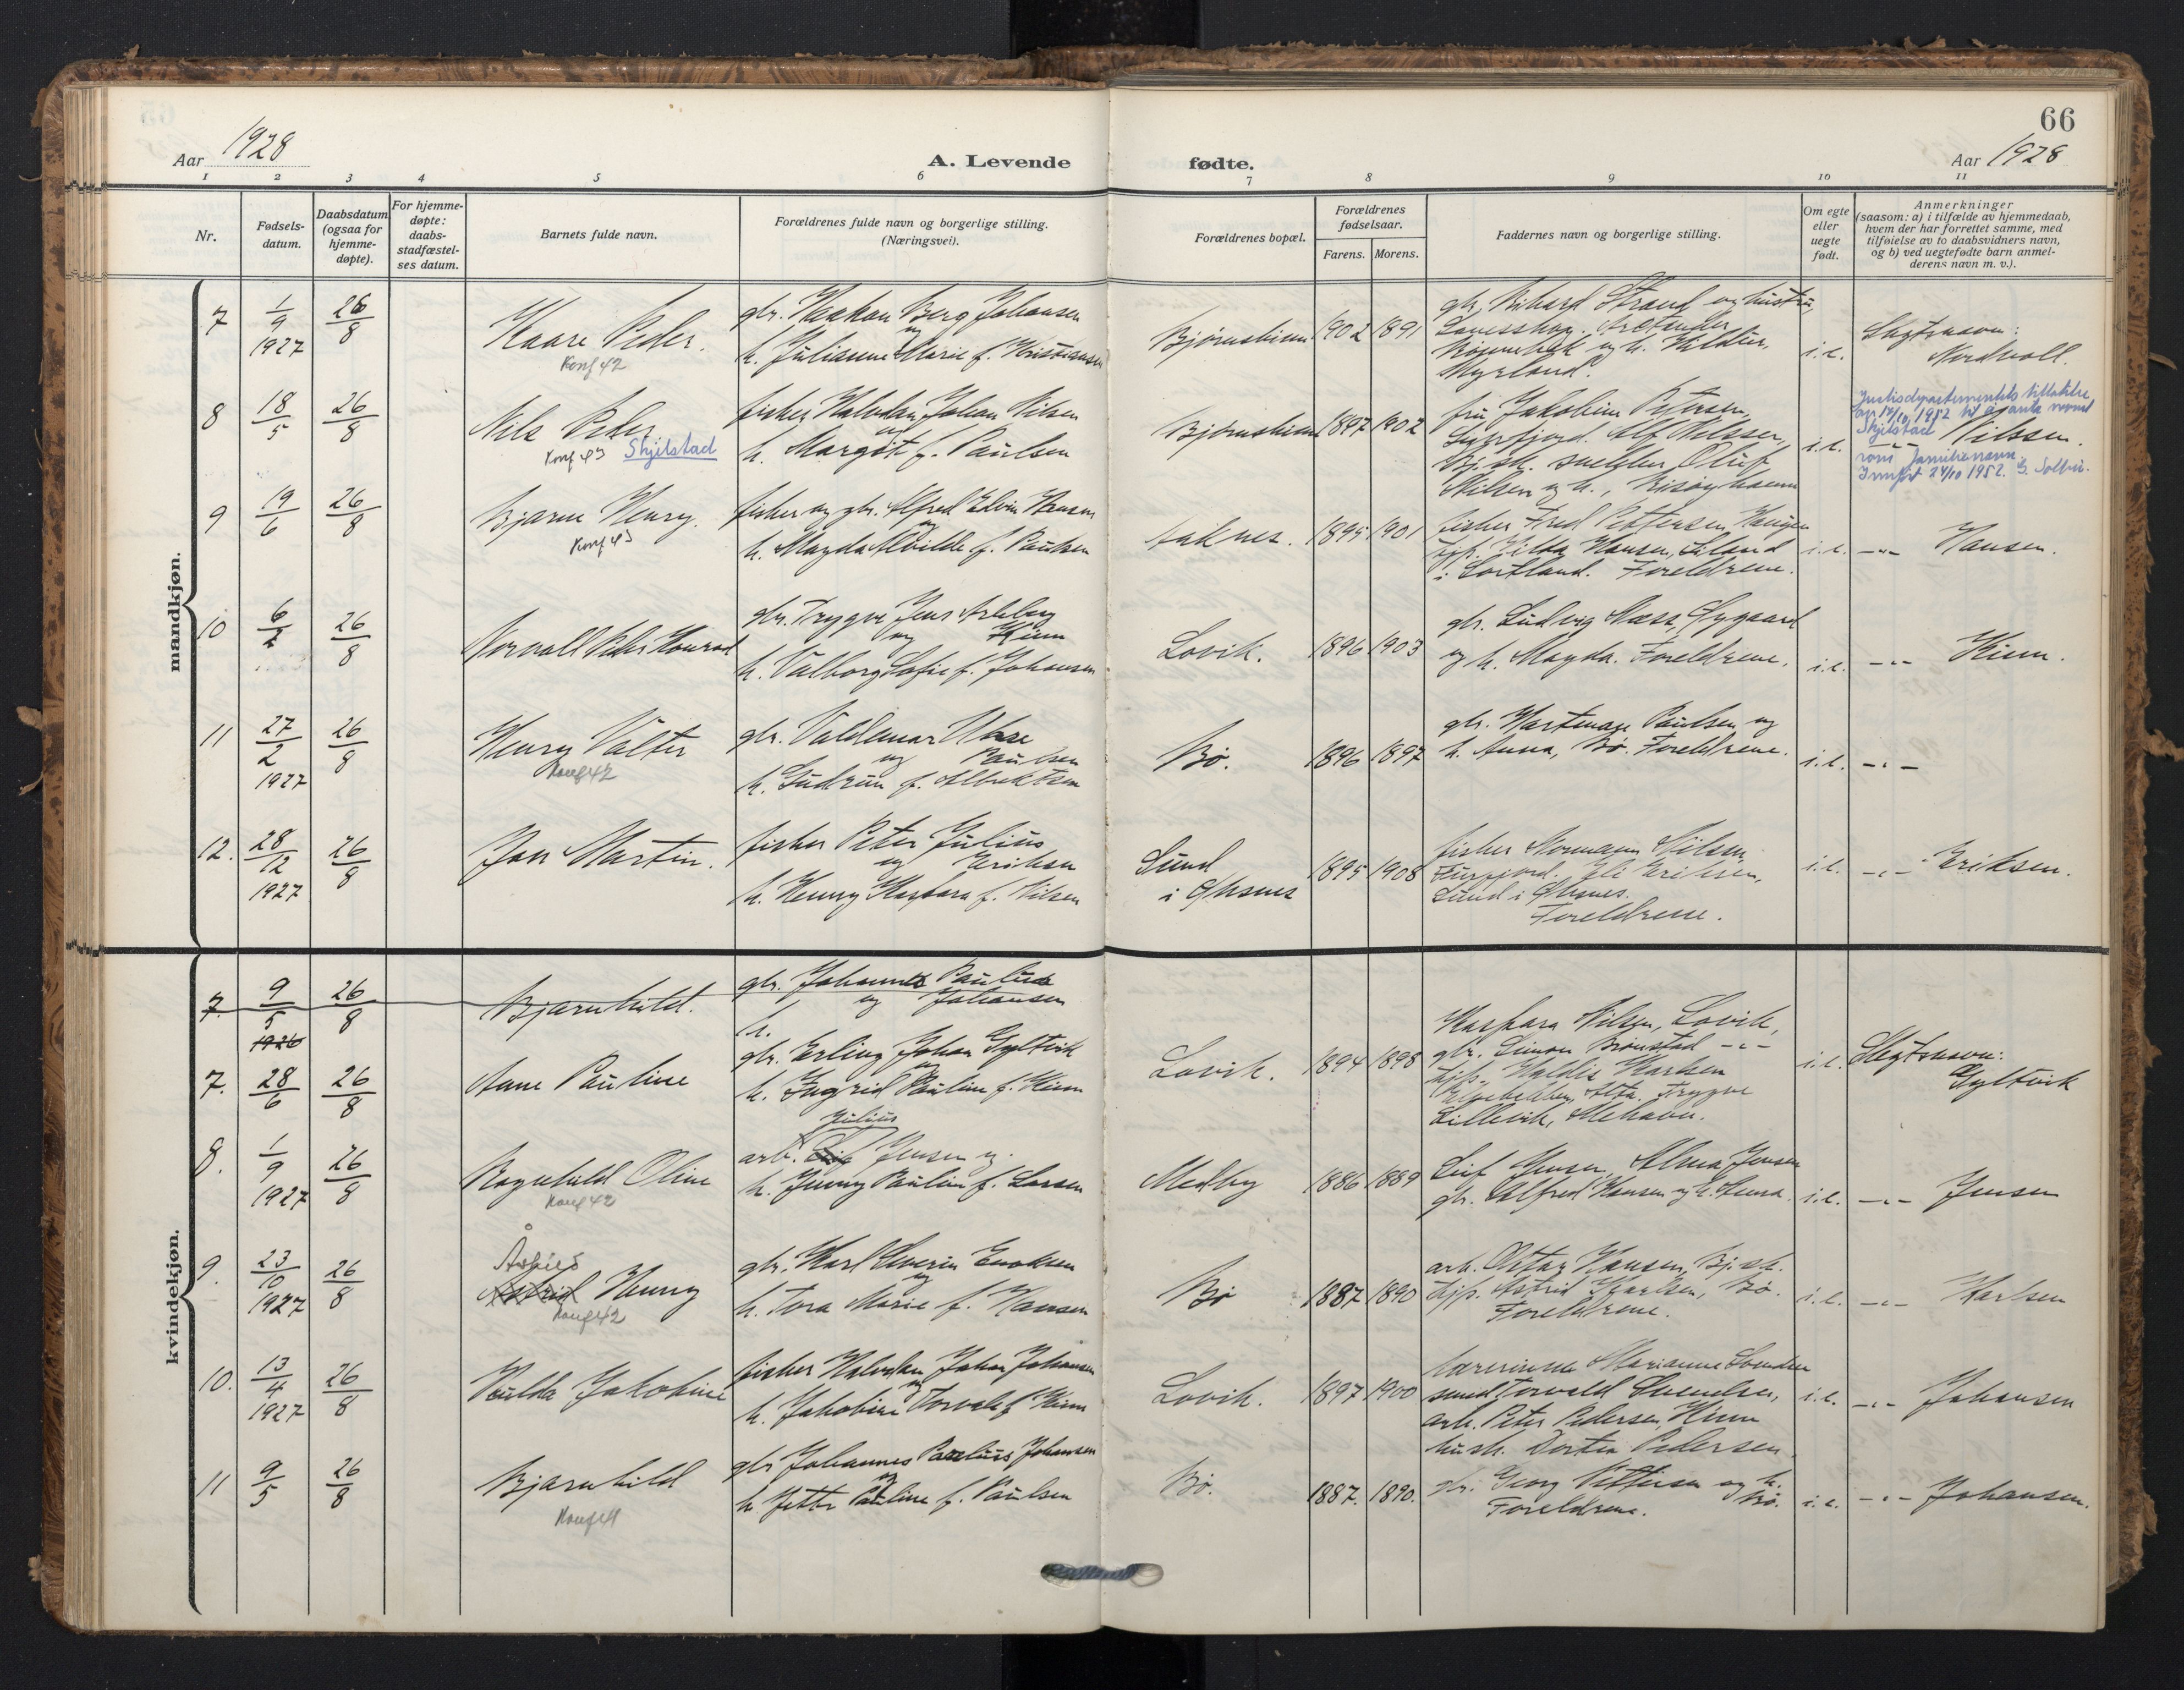 66
Aar 1928
A. Levende fødte.
Aar 1928
1 2 3 4 5 6 7 8 9 10 11
Nr.
Fødsels-
datum.
Daabsdatum
(ogsaa for
hjemme-
døpte).
For hjemme-
døpte:
daabs-
stadfæstel-
ses datum.
Barnets fulde navn.
Forældrenes fulde navn og borgerlige stilling.
(Næringsvei).
Forældrenes bopæl.
Forældrenes
fødselsaar.
Farens. Morens.
Faddernes navn og borgerlige stilling.
Om egte
eller
uegte
født.
Anmerkninger
(saasom: a) i tilfælde av hjemmedaab,
hvem der har forrettet samme, med
tilføielse av to daabsvidners navn,
og b) ved uegtefødte barn anmel-
derens navn m. v.).
mandkjøn.
7 1/9 1927 26/8
Kaare Peder.
Konf 42
gbr. Haakon Berg Johansen
og
h. Julianne Marie f. Kristiansen
Bjørnshinn 1902 1891
gbr. Rikard Strand og hustru,
h. Hildur
Myrland.
i.e.
Slegtsnavn:
Nordvoll.
8 18/5 26/8
Nils Peter
Konf 43 Skjelstad
fisker Halvdan Johan Nilsen
og
h. Margot f. Paulsen
Bjørnshinn 1897 1902
fru Jakobine Petersen,
Alf Nilssen,
Bj.sk. snekker Oluf
Nilsen og h., Risøyhamn
i.e.
Justisdepartementets tillatelse
av 17/10 1952 til å anta navnet
Skjelstad
som familienavn.
Innført 24/10 1952. G. Solbu.
-"- Nilssen.
9 19/6 26/8
Bjarne Henry.
Konf 43
fisker og gbr. Alfred Edvin Hansen
og
h. Magda Alvilde f. Paulsen
Aaknes. 1895 1901
fisker Fred Pettersen, Haugen
tjp. Hilda Hansen, Liland
i Sortland. Foreldrene.
i.e. -"- Hansen.
10 6/2 26/8
Norvall Peder Konrad
gbr. Trygve Jens Arleberg
og Kinn
h. Valborg Sofie f. Johansen
Lovik. 1896 1903
gbr. Ludvig Mass, Nygaard
og h. Magda. Foreldrene.
i.e. -"- Kinn.
11 27/2 1927 26/8
Henry Valter
Konf 42
gbr. Valdemar Uhre
og Paulsen
h. Gudrun f. Albrektsen
Bø. 1896 1897
gbr. Hartmann Paulsen og
h. Anna, Bø. Foreldrene.
i.e. -"-
12. 28/12 1927 26/8
Jan Martin.
fisker Peter Julius
og Eriksen
h. Henny Kaspara f. Nilsen
Sund
i Øksnes
1895 1908
fisker Normann Nilsen,
Eli Eriksen,
Sund i Øksnes.
Foreldrene.
i.e. -"- Eriksen.
kvindekjøn.
7. 9/5 1926 26/8
Bjarnhild.
gbr. Johannes Paulius
og Johansen
h.
7. 28/6 26/8
Anne Pauline
gbr. Erling Johan Gyltvik
og
h. Ingrid Pauline f. Kinn
Lovik. 1894 1898
Kaspara Nilsen, Lovik,
gbr. Simon Brønstad -"-
tjp. Haldis Karlsen
Elvebakken, Alta. Trygve
Lillevik, Mehavn.
i.e. Slegtsnavn:
Gyltvik
8. 1/9 1927 26/8
Ragnhild Oline
Konf 42
Julius
arb. Jensen og
h. Jenny Pauline f. Larsen
Medby 1886 1889
Leif Jensen, Alma Jensen
gbr. Alfred Hansen og h. Anna.
i.e. -"- Jensen
9. 23/10 1927 26/8
Astrid Henny
Konf 42
gbr. Karl Severin Enoksen
og
h. Tora Marie f. Hansen
Bø 1887 1890
arb. Ottar Hansen, Bj.sk.
tjp. Astrid Karlsen, Bø.
Foreldrene.
i.e. -"- Karlsen
10. 13/4 1927 26/8
Vaulda Jakobine
fisker Halvdan Johan Johansen
og
h. Jakobine Torvalda f. Kinn
Lovik. 1897 1900
lærerinne Marianne Svendsen
smed Torvald Svendsen,
arb. Peter Pedersen, Kinn
hush. Dortea Pedersen.
i.e. -"- Johansen
11 9/5 26/8
Bjarnhild
Konf 41
gbr Johannes Paulius Johansen
og
h. Jette Pauline f. Paulsen
Bø. 1887. 1890.
gbr. Georg Pettersen og h.
Bø.
Foreldrene.
i.e. -"- Johansen.